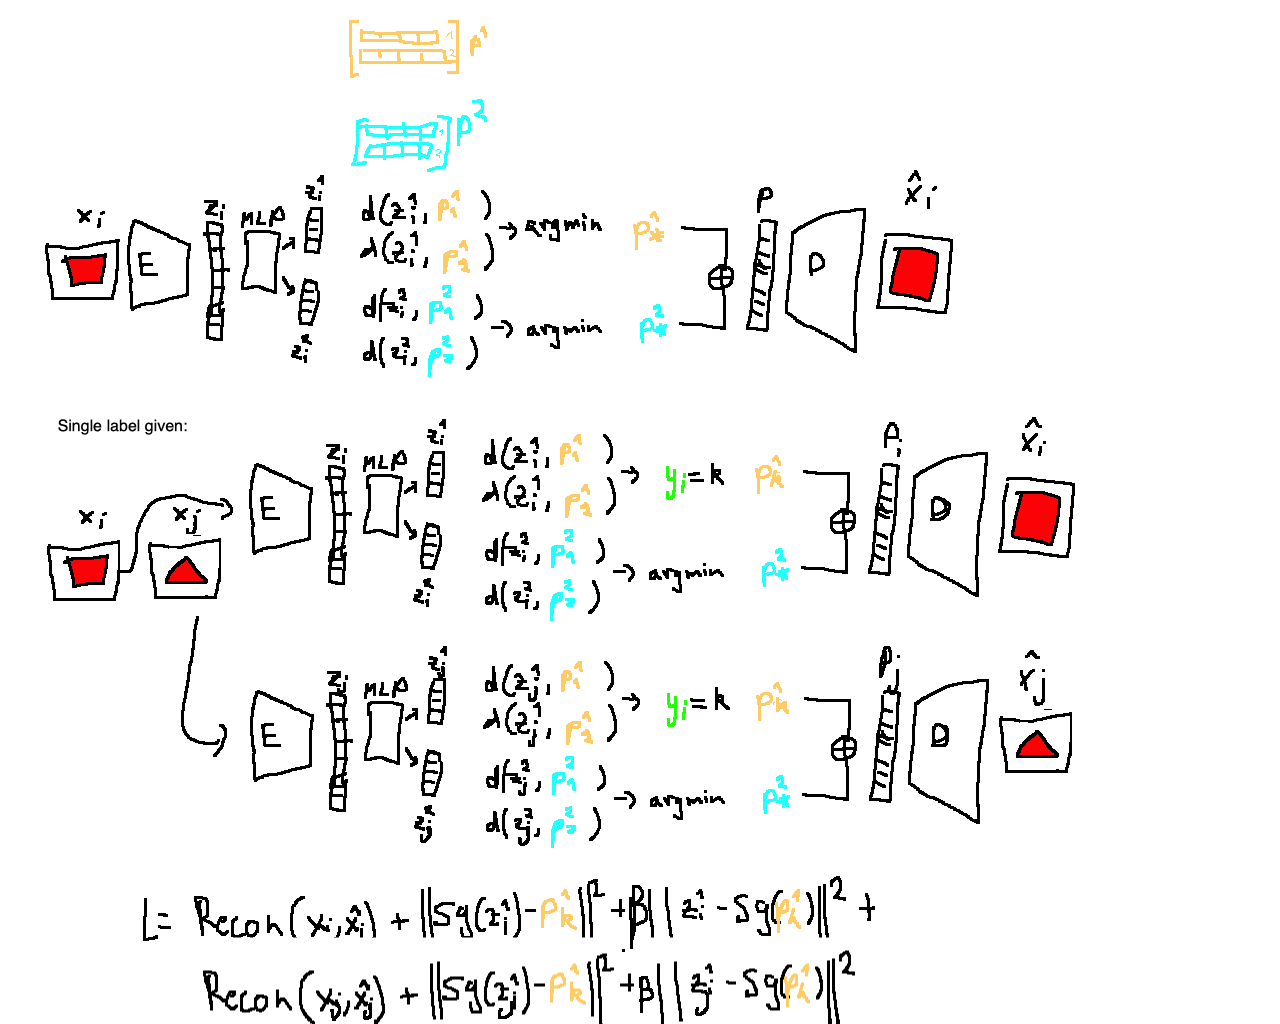 [ 1 2 ] p¹
[ 1 2 ] p²
x_i E z_i MLP z_i¹ z_i²
d(z_i¹, p_1¹)
d(z_i¹, p_2¹) → argmin p_*¹
d(z_i², p_1²)
d(z_i², p_2²) → argmin p_*²
⊕ P D x̂_i
Single label given:
x_i x_j
E z_i MLP z_i¹ z_i²
d(z_i¹, p_1¹)
d(z_i¹, p_2¹) → y_i = k p_k¹
d(z_i², p_1²)
d(z_i², p_2²) → argmin p_*²
⊕ P_i D x̂_i
E z_j MLP z_j¹ z_j²
d(z_j¹, p_1¹)
d(z_j¹, p_2¹) → y_i = k p_k¹
d(z_j², p_1²)
d(z_j², p_2²) → argmin p_*²
⊕ P_j D x̂_j
L = Recon(x_i, x̂_i) + ||sg(z_i¹) - p_k¹||² + β||z_i¹ - sg(p_k¹)||² +
Recon(x_j, x̂_j) + ||sg(z_j¹) - p_k¹||² + β||z_j¹ - sg(p_k¹)||²